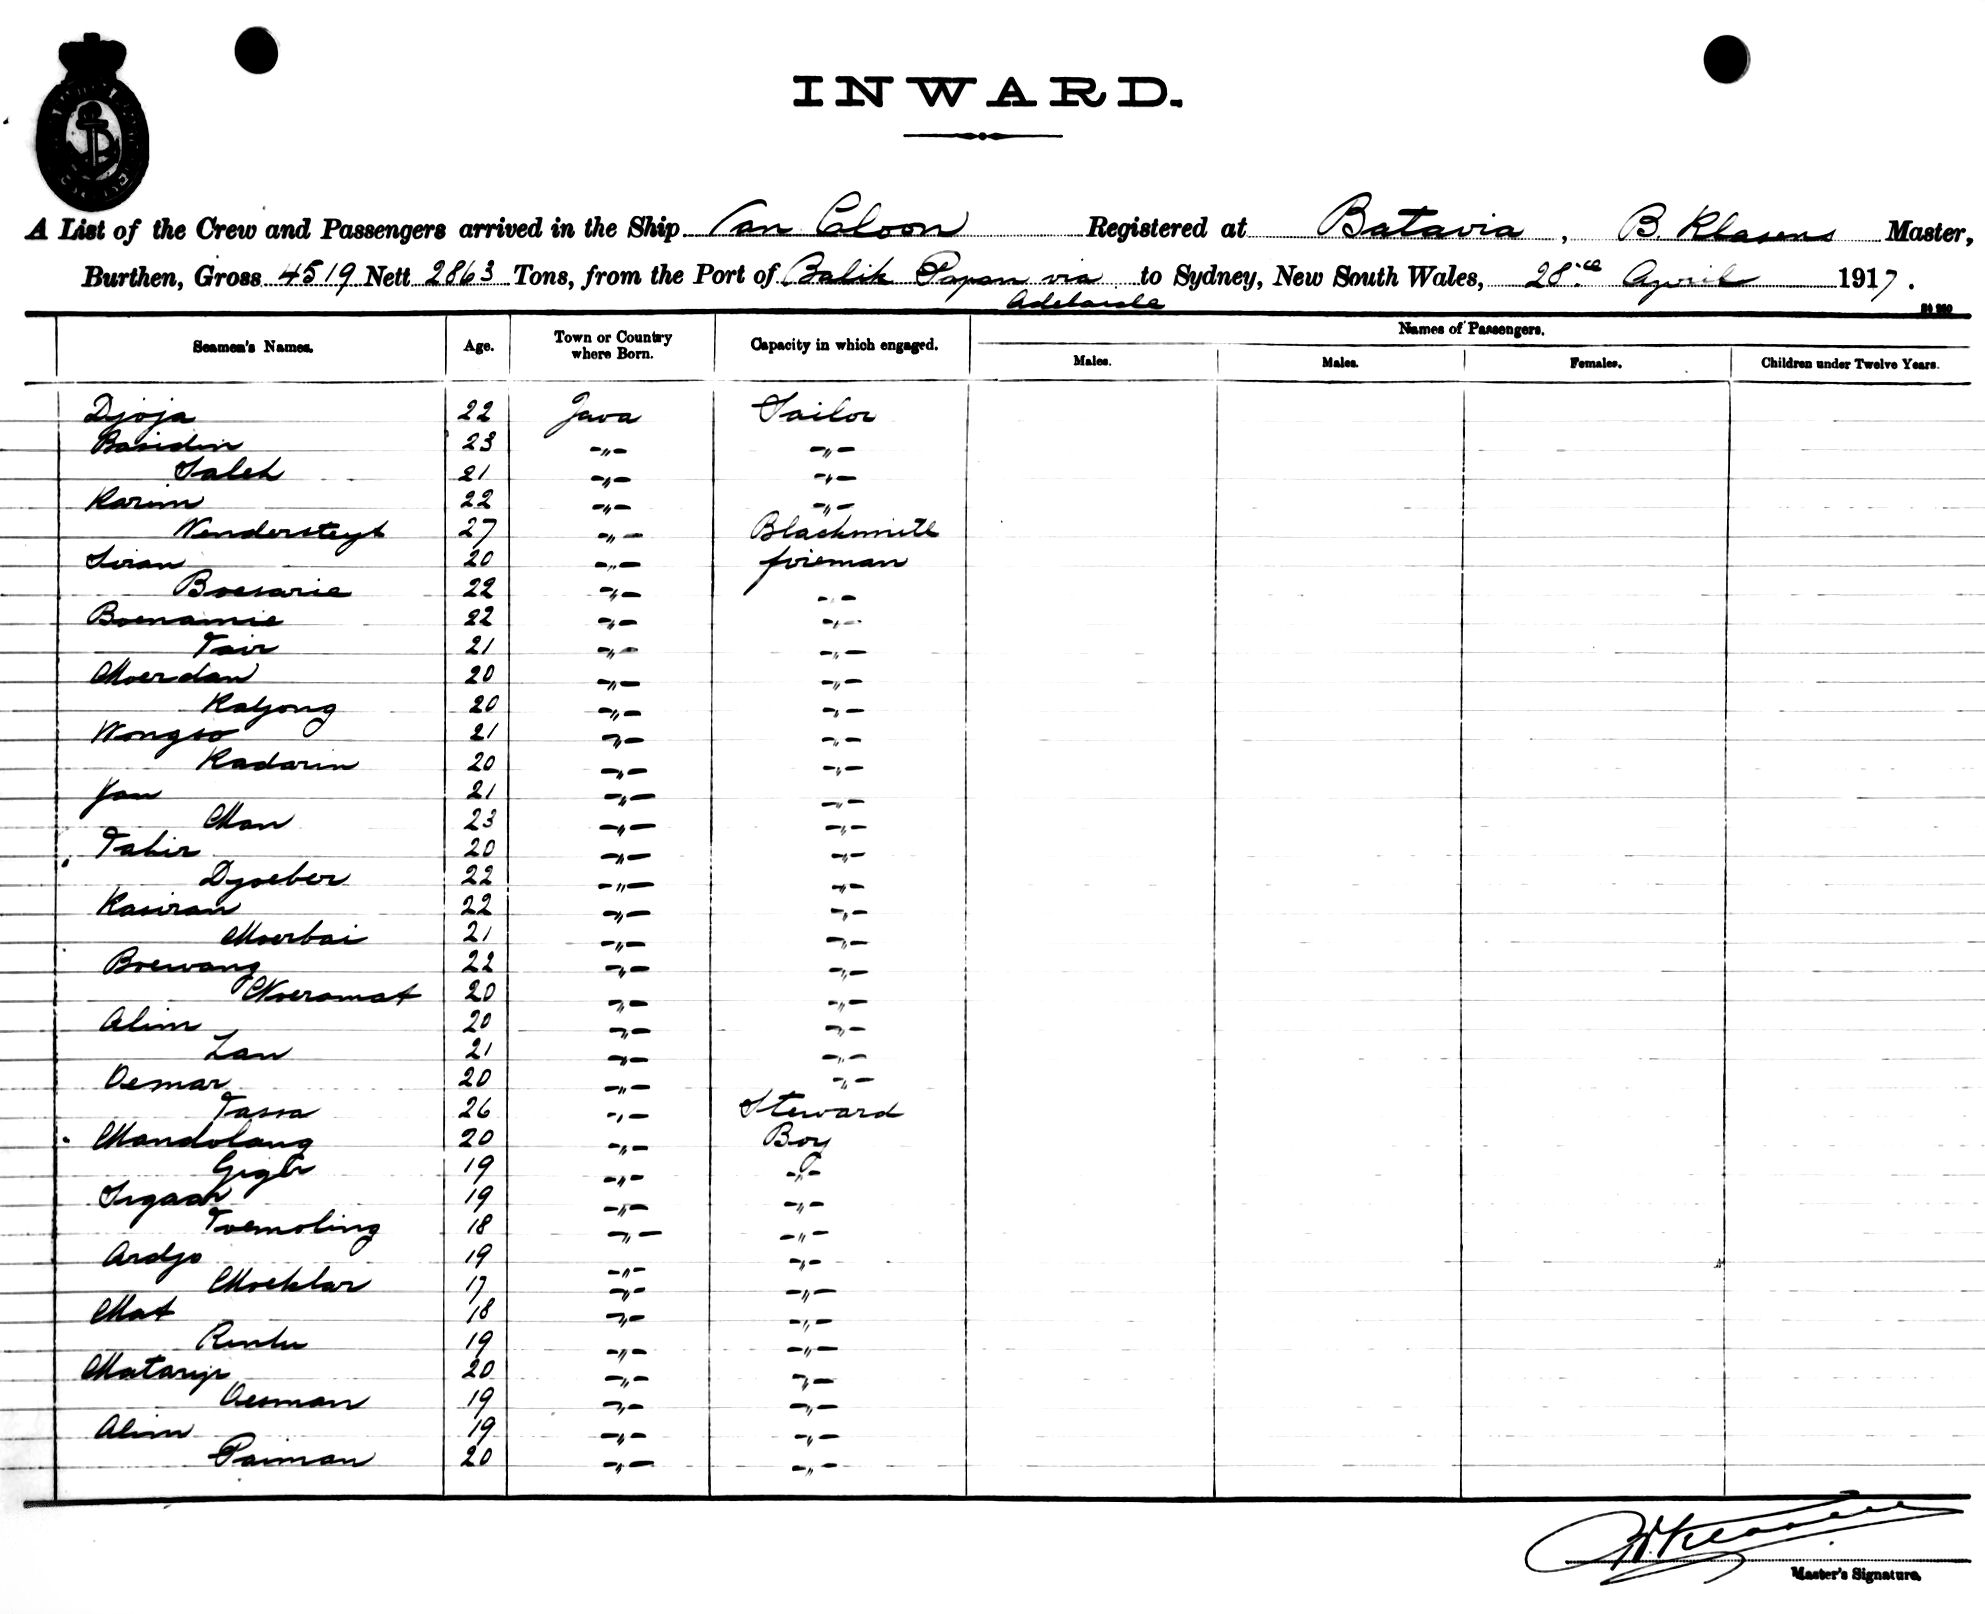 INWARD.
A List of the Crew and Passengers arrived in the Ship Van Cloon Registered at Batavia, B. Klasens Master,
Burthen, Gross 4519 Nett 2863 Tons, from the Port of Balik Papan via Adelaide to Sydney, New South Wales, 28th April 1917.
Names of Passengers.
Seamen's Names. Age. Town or Country where Born. Capacity in which engaged. Males. Males. Females. Children under Twelve Years.
Djoja 22 Java Sailor
Basidin 23 -„- -„-
Saleh 21 -„- -„-
Karim 22 -„- -„-
Vendersteyt 27 -„- Blacksmith
Siran 20 -„- fireman
Boesarie 22 -„- -„-
Boenamie 22 -„- -„-
Tair 21 -„- -„-
Moerdan 20 -„- -„-
Kadjong 20 -„- -„-
Wongso 21 -„- -„-
Kadarin 20 -„- -„-
Jan 21 -„- -„-
Man 23 -„- -„-
Tahir 20 -„- -„-
Djoeber 22 -„- -„-
Kasiran 22 -„- -„-
Moerbai 21 -„- -„-
Boewang 22 -„- -„-
Noeromat 20 -„- -„-
Alim 20 -„- -„-
Lan 21 -„- -„-
Oemar 20 -„- -„-
Tassa 26 -„- Steward
Mandolang 20 -„- Boy
19 -„- -„-
Sigaar 19 -„- -„-
Toemoling 18 -„- -„-
Ardjo 19 -„- -„-
Moektar 17 -„- -„-
Mat 18 -„- -„-
19 -„- -„-
Matarip 20 -„- -„-
Oesman 19 -„- -„-
Alim 19 -„- -„-
Paiman 20 -„- -„-
Master's Signature.